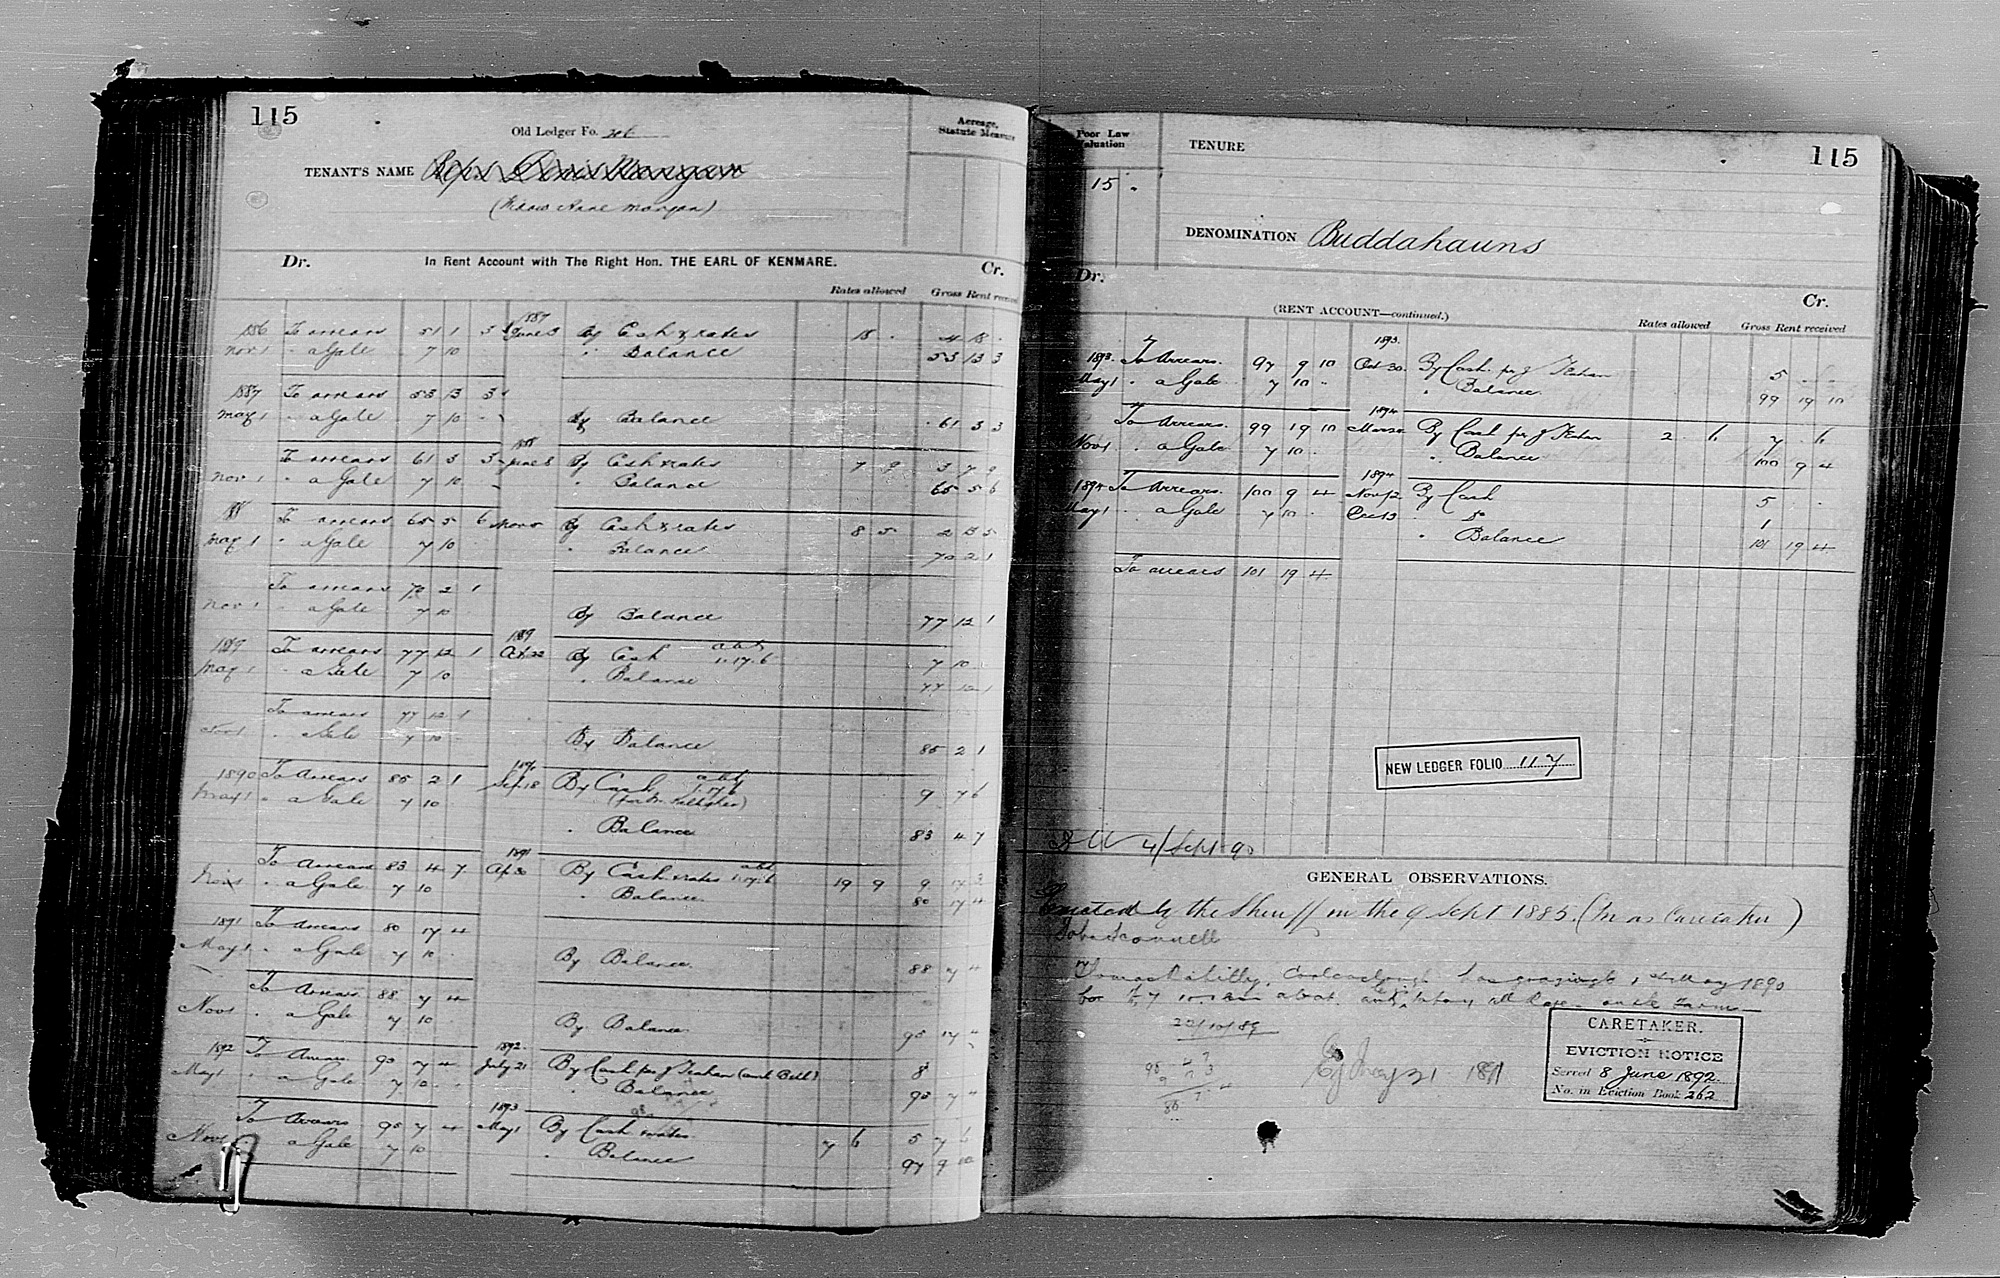 115
Old Ledger Fo.
Acreage,
Statute Measure
TENANT'S NAME Reps. Denis Mangan
(Widow Anne Mangan)
Dr. In Rent Account with The Right Hon. THE EARL OF KENMARE. Cr.
Rates allowed Gross Rent received
1886 To arrears 51 1 3 1887 June 3 By Cash & rates 18 . 4 18 .
Nov 1 " a Gale 7 10 " Balance 53 13 3
1887 To arrears 53 13 3
May 1 " a Gale 7 10 By Balance 61 3 3
To arrears 61 3 3 1888 June 8 By Cash & rates 7 9 3 7 9
Nov 1 " a Gale 7 10 " Balance 65 5 6
88 To arrears 65 5 6 Nov 5 By Cash & rates 8 5 2 13 5
May 1 " a Gale 7 10 " Balance 70 2 1
To arrears 70 2 1
Nov 1 " a Gale 7 10 By Balance 77 12 1
1889 To arrears 77 12 1 1889 22 By Cash 1.17.6 7 10
May 1 " a Gale 7 10 " Balance 77 12 1
To arrears 77 12 1
Nov 1 " a Gale 7 10 By Balance 85 2 1
1890 To Arrears 85 2 1 1890 Sep. 18 By Cash 1.17.6 9 7 6
May 1 " a Gale 7 10
" Balance 83 4 7
To Arrears 83 4 7 1891 Ap. 30 By Cash & rates 1.17.6 19 9 9 17 3
Nov 1 " a Gale 7 10 " Balance 80 17 4
1891 To Arrears 80 17 4
May 1 " a Gale 7 10 By Balance 88 7 4
To Arrears 88 7 4
Nov 1 " a Gale 7 10 By Balance 95 17 4
1892 To Arrears 95 7 4 1892 July 21 By Cash per J Leahan 8
May 1 " a Gale 7 10 " Balance 95 7 4
To Arrears 95 7 4 1893 May 1 By Cash & rates 7 6 5 7 6
Nov 1 " a Gale 7 10 " Balance 97 9 10
Poor Law
Valuation
15 "
TENURE
115
DENOMINATION Buddahauns
Dr. (RENT ACCOUNT—continued.) Cr.
Rates allowed Gross Rent received
1893 To Arrears. 97 9 10 1893 Oct 30 By Cash per J Leahan 5
May 1 " a Gale 7 10 " Balance 99 19 10
To Arrears. 99 19 10 1894 Mar By Cash per J Leahan 2 6 7 6
Nov 1 " a Gale 7 10 " Balance 100 9 4
1894 To Arrears. 100 9 4 1894 Nov 12 By Cash 5
May 1 " a Gale 7 10 Dec 13 " do 1
" Balance 101 19 4
To arrears 101 19 4
NEW LEDGER FOLIO 117
4/Sept 90
GENERAL OBSERVATIONS.
Evicted by the Sheriff on the 9 Sept 1885. (In as Caretaker)
has grazing to 1st May 1890
for £7
20/10/89
May 21 1891
CARETAKER.
EVICTION NOTICE
Served 8 June 1892
No. in Eviction Book 262